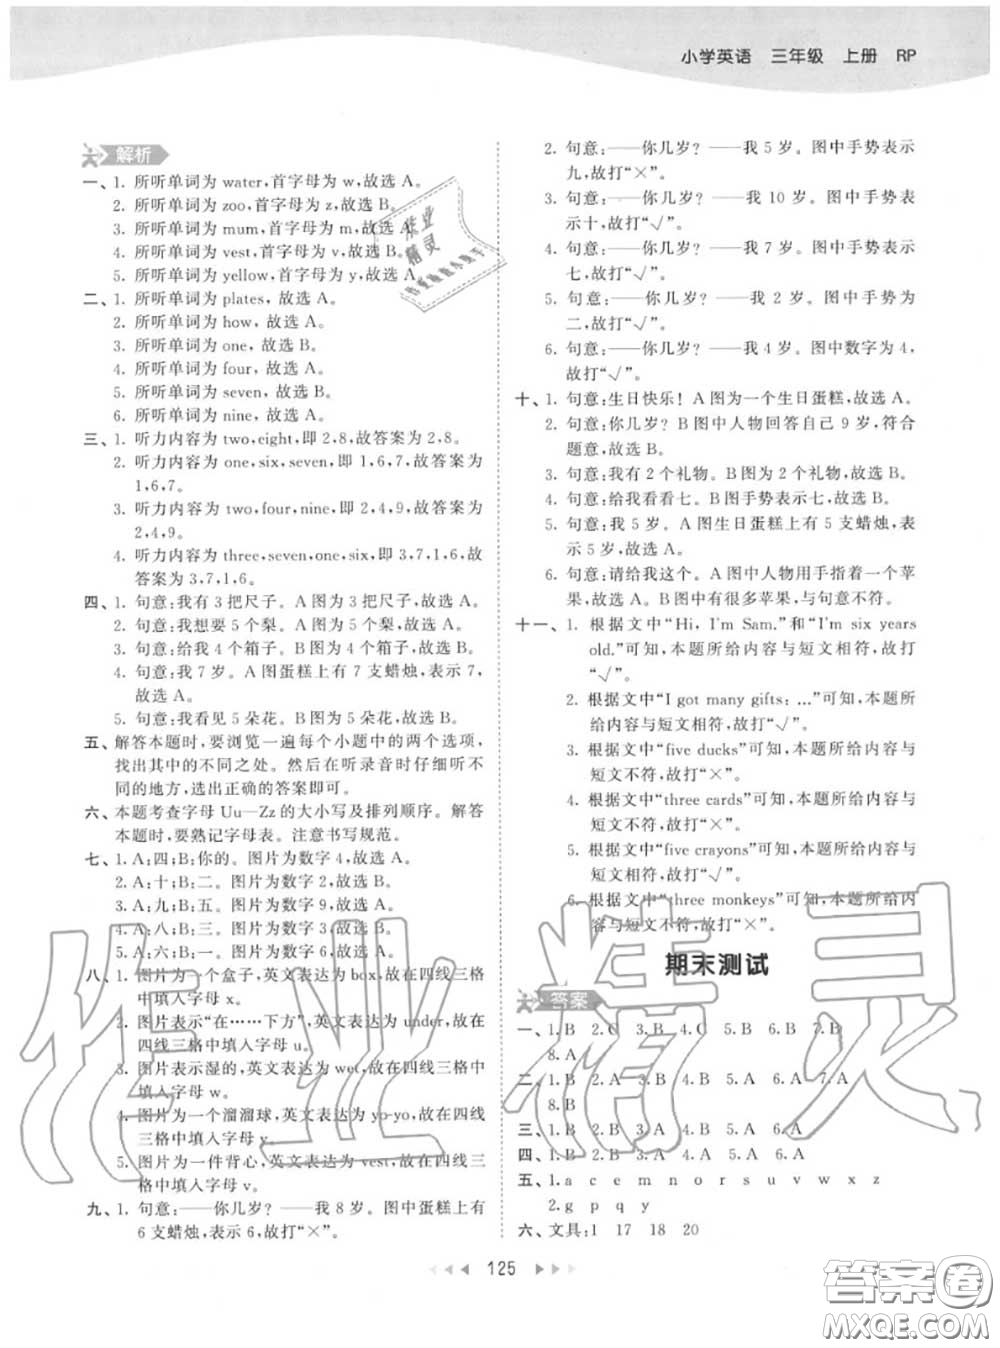 小学英语 三年级 上册 RP
解析
一、1. 所听单词为 water,首字母为 w,故选 A。
2. 所听单词为 zoo,首字母为 z,故选 B。
3. 所听单词为 mum,首字母为 m,故选 A。
4. 所听单词为 vest,首字母为 v,故选 B。
5. 所听单词为 yellow,首字母为 y,故选 A。
二、1. 所听单词为 plates, 故选 A。
2. 所听单词为 how, 故选 A。
3. 所听单词为 one, 故选 B。
4. 所听单词为 four, 故选 A。
5. 所听单词为 seven, 故选 B。
6. 所听单词为 nine, 故选 A。
三、1. 听力内容为 two,eight,即 2,8,故答案为 2,8。
2. 听力内容为 one,six,seven,即 1,6,7,故答案为
1,6,7。
3. 听力内容为 two,four,nine,即 2,4,9,故答案为
2,4,9。
4. 听力内容为 three,seven,one,six,即 3,7,1,6,故
答案为 3,7,1,6。
四、1. 句意:我有 3 把尺子。A 图为 3 把尺子,故选 A。
2. 句意:我想要 5 个梨。A 图为 5 个梨,故选 A。
3. 句意:给我 4 个箱子。B 图为 4 个箱子,故选 B。
4. 句意:我 7 岁。A 图蛋糕上有 7 支蜡烛,表示 7,
故选 A。
5. 句意:我看见 5 朵花。B 图为 5 朵花,故选 B。
五、解答本题时,要浏览一遍每个小题中的两个选项,
找出其中的不同之处。然后在听录音时仔细听不
同的地方,选出正确的答案即可。
六、本题考查字母 Uu—Zz 的大小写及排列顺序。解答
本题时,要熟记字母表。注意书写规范。
七、1. A;四;B:你的。图片为数字 4,故选 A。
2. A:十;B:二。图片为数字 2,故选 B。
3. A:九;B:五。图片为数字 9,故选 A。
4. A:八;B:三。图片为数字 3,故选 B。
5. A:六;B:一。图片为数字 6,故选 A。
八、1. 图片为一个盒子,英文表达为 box,故在四线三格
中填入字母 x。
2. 图片表示“在……下方”,英文表达为 under,故在
四线三格中填入字母 u。
3. 图片表示湿的,英文表达为 wet,故在四线三格中
填入字母 w。
4. 图片为一个溜溜球,英文表达为 yo-yo,故在四线
三格中填入字母 y。
5. 图片为一件背心,英文表达为 vest,故在四线三
格中填入字母 v。
九、1. 句意:——你几岁? ——我 8 岁。图中蛋糕上有
6 支蜡烛,表示 6,故打“×”。
2. 句意:——你几岁? ——我 5 岁。图中手势表示
九,故打“×”。
3. 句意:——你几岁? ——我 10 岁。图中手势表
示十,故打“√”。
4. 句意:——你几岁? ——我 7 岁。图中手势表示
七,故打“√”。
5. 句意:——你几岁? ——我 2 岁。图中手势为
二,故打“√”。
6. 句意:——你几岁? ——我 4 岁。图中数字为 4,
故打“√”。
十、1. 句意:生日快乐! A 图为一个生日蛋糕,故选 A。
2. 句意:你几岁? B 图中人物回答自己 9 岁,符合
题意,故选 B。
3. 句意:我有 2 个礼物。B 图为 2 个礼物,故选 B。
4. 句意:给我看看七。B 图手势表示七,故选 B。
5. 句意:我 5 岁。A 图生日蛋糕上有 5 支蜡烛,表
示 5 岁,故选 A。
6. 句意:请给我这个。A 图中人物用手指着一个苹
果,故选 A。B 图中有很多苹果,与句意不符。
十一、1. 根据文中“Hi, I'm Sam.”和“I'm six years
old.”可知,本题所给内容与短文相符,故打
“√”。
2. 根据文中“I got many gifts: …”可知,本题所
给内容与短文相符,故打“√”。
3. 根据文中“five ducks”可知,本题所给内容与
短文不符,故打“×”。
4. 根据文中“three cards”可知,本题所给内容与
短文不符,故打“×”。
5. 根据文中“five crayons”可知,本题所给内容与
短文相符,故打“√”。
6. 根据文中“three monkeys”可知,本题所给内
容与短文不符,故打“×”。
期末测试
答案
一、1. B 2. C 3. B 4. C 5. B 6. B 7. B
8. A
二、1. B 2. A 3. B 4. B 5. A 6. A 7. A
8. B
三、1. B 2. B 3. A 4. B 5. A 6. A
四、1. B 2. B 3. A 4. A 5. B 6. A
五、1. a c e m n o r s u v w x z
2. g p q y
六、文具:1 17 18 20
125
作业精灵
作业
精灵
答案卷
MXQE.COM